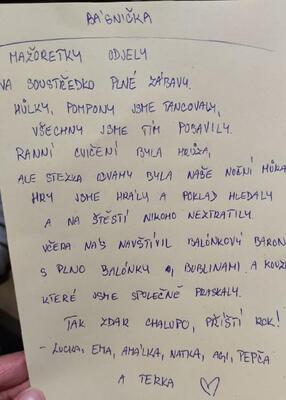 BÁSNIČKA
MAŽORETKY ODJELY
NA SOUSTŘEDKO PLNÉ ZÁBAVY.
HŮLKY, POMPONY JSME TANCOVALY,
VŠECHNY JSME TÍM POBAVILY.
RANNÍ CVIČENÍ BYLA HRŮZA,
ALE STEZKA ODVAHY BYLA NAŠE NOČNÍ MŮRA
HRY JSME HRÁLY A POKLAD HLEDALY
A NA ŠTĚSTÍ NIKOHO NEZTRATILY.
VČERA NÁS NAVŠTÍVIL BALÓNKOVÝ BARON
S PLNO BALÓNKY, BUBLINAMI A KOUZ
KTERÉ JSME SPOLEČNĚ PRASKALY.
TAK ZDAR CHALUPO, PŘÍŠTÍ ROK!
- LUCKA, EMA, AMÁLKA, NATKA, AGI, PEPČA
A TERKA